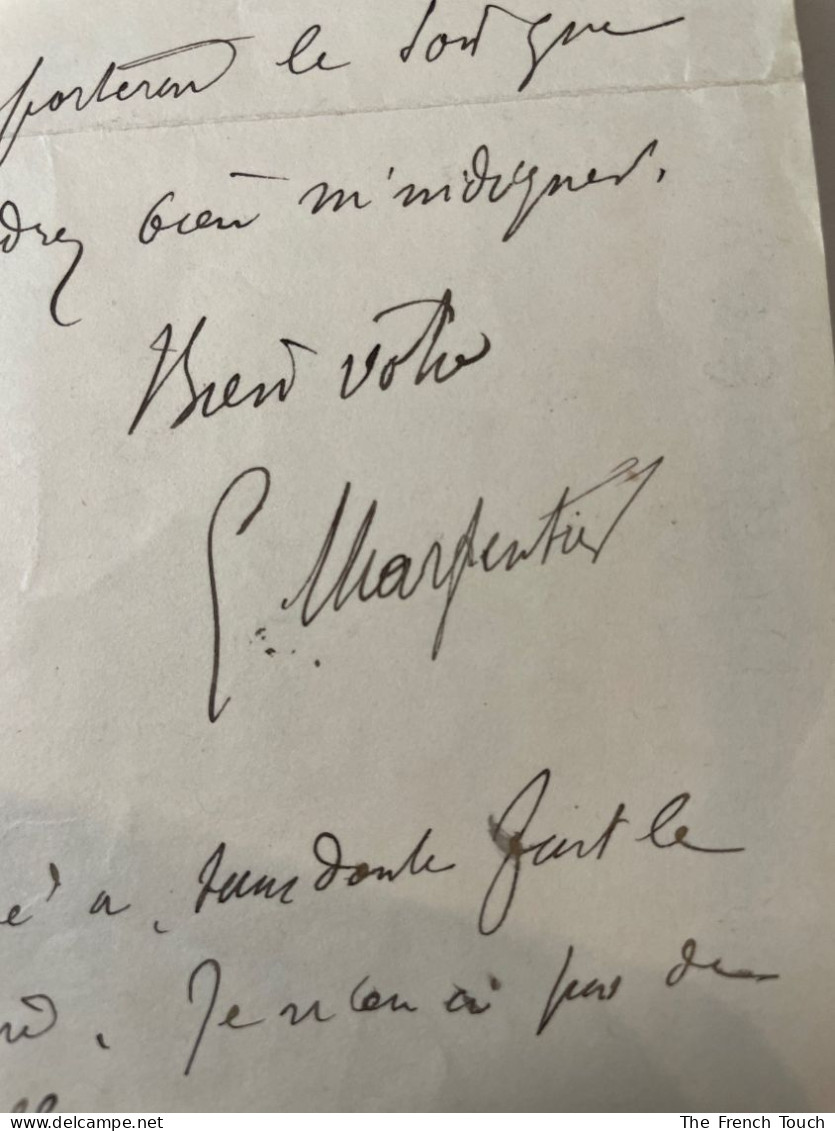 porteront le soir que
drez bien m'indiquer.
Bien votre
G Charpentier
é a, sans doute fait le
. Je n'en ai pas de
The French Touch